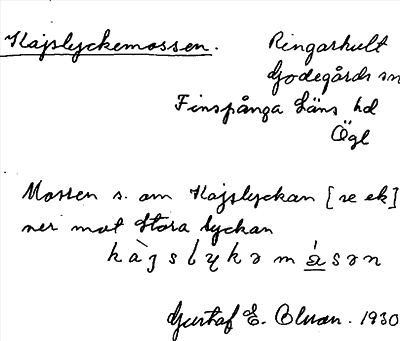 Kajslyckemossen.
Ringarhult
Godegårds sn
Finspånga läns hd
Ögl
Mossen s. om Kajslyckan [se ek]
ner mot Stora lyckan
kàjslykəmåsən
Gustaf E. Bluan. 1930